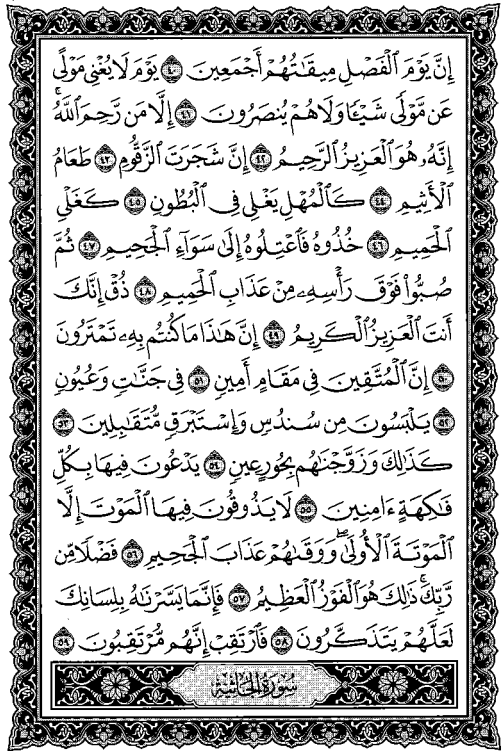 إِنَّ يَوْمَ ٱلْفَصْلِ مِيقَـٰتُهُمْ أَجْمَعِينَ ٤٠ يَوْمَ لَا يُغْنِى مَوْلًى
عَن مَّوْلًى شَيْـًٔا وَلَا هُمْ يُنصَرُونَ ٤١ إِلَّا مَن رَّحِمَ ٱللَّهُ ۚ
إِنَّهُۥ هُوَ ٱلْعَزِيزُ ٱلرَّحِيمُ ٤٢ إِنَّ شَجَرَتَ ٱلزَّقُّومِ ٤٣ طَعَامُ
ٱلْأَثِيمِ ٤٤ كَٱلْمُهْلِ يَغْلِى فِى ٱلْبُطُونِ ٤٥ كَغَلْىِ
ٱلْحَمِيمِ ٤٦ خُذُوهُ فَٱعْتِلُوهُ إِلَىٰ سَوَآءِ ٱلْجَحِيمِ ٤٧ ثُمَّ
صُبُّوا۟ فَوْقَ رَأْسِهِۦ مِنْ عَذَابِ ٱلْحَمِيمِ ٤٨ ذُقْ إِنَّكَ
أَنتَ ٱلْعَزِيزُ ٱلْكَرِيمُ ٤٩ إِنَّ هَـٰذَا مَا كُنتُم بِهِۦ تَمْتَرُونَ
٥٠ إِنَّ ٱلْمُتَّقِينَ فِى مَقَامٍ أَمِينٍ ٥١ فِى جَنَّـٰتٍ وَعُيُونٍ
٥٢ يَلْبَسُونَ مِن سُندُسٍ وَإِسْتَبْرَقٍ مُّتَقَـٰبِلِينَ ٥٣
كَذَٰلِكَ وَزَوَّجْنَـٰهُم بِحُورٍ عِينٍ ٥٤ يَدْعُونَ فِيهَا بِكُلِّ
فَـٰكِهَةٍ ءَامِنِينَ ٥٥ لَا يَذُوقُونَ فِيهَا ٱلْمَوْتَ إِلَّا
ٱلْمَوْتَةَ ٱلْأُولَىٰ ۖ وَوَقَىٰهُمْ عَذَابَ ٱلْجَحِيمِ ٥٦ فَضْلًا مِّن
رَّبِّكَ ۚ ذَٰلِكَ هُوَ ٱلْفَوْزُ ٱلْعَظِيمُ ٥٧ فَإِنَّمَا يَسَّرْنَـٰهُ بِلِسَانِكَ
لَعَلَّهُمْ يَتَذَكَّرُونَ ٥٨ فَٱرْتَقِبْ إِنَّهُم مُّرْتَقِبُونَ ٥٩
سُورَةُ الجَاثِيَةِ